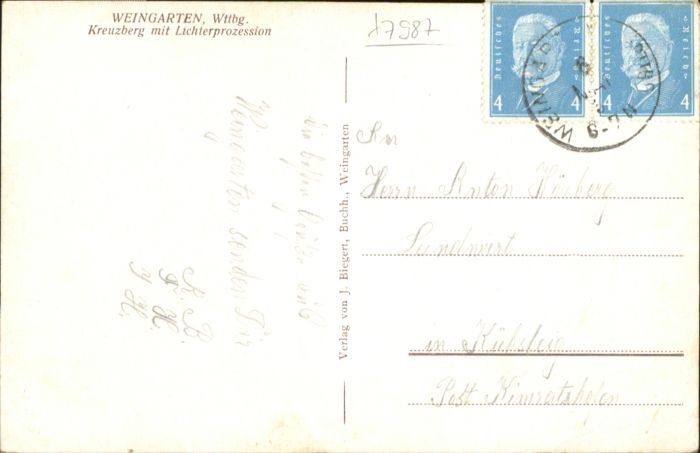 WEINGARTEN, Wttbg.
Kreuzberg mit Lichterprozession
17987
Deutsches Reich
4 4
Deutsches Reich
4 4
WEINGARTEN
6-7 N
die besten Grüße aus
Weingarten senden Dir
R. B.
F. H.
J. H.
Verlag von J. Biegert, Buchh., Weingarten
An
Herrn Anton
Landwirt
in
Post Kimratshofen